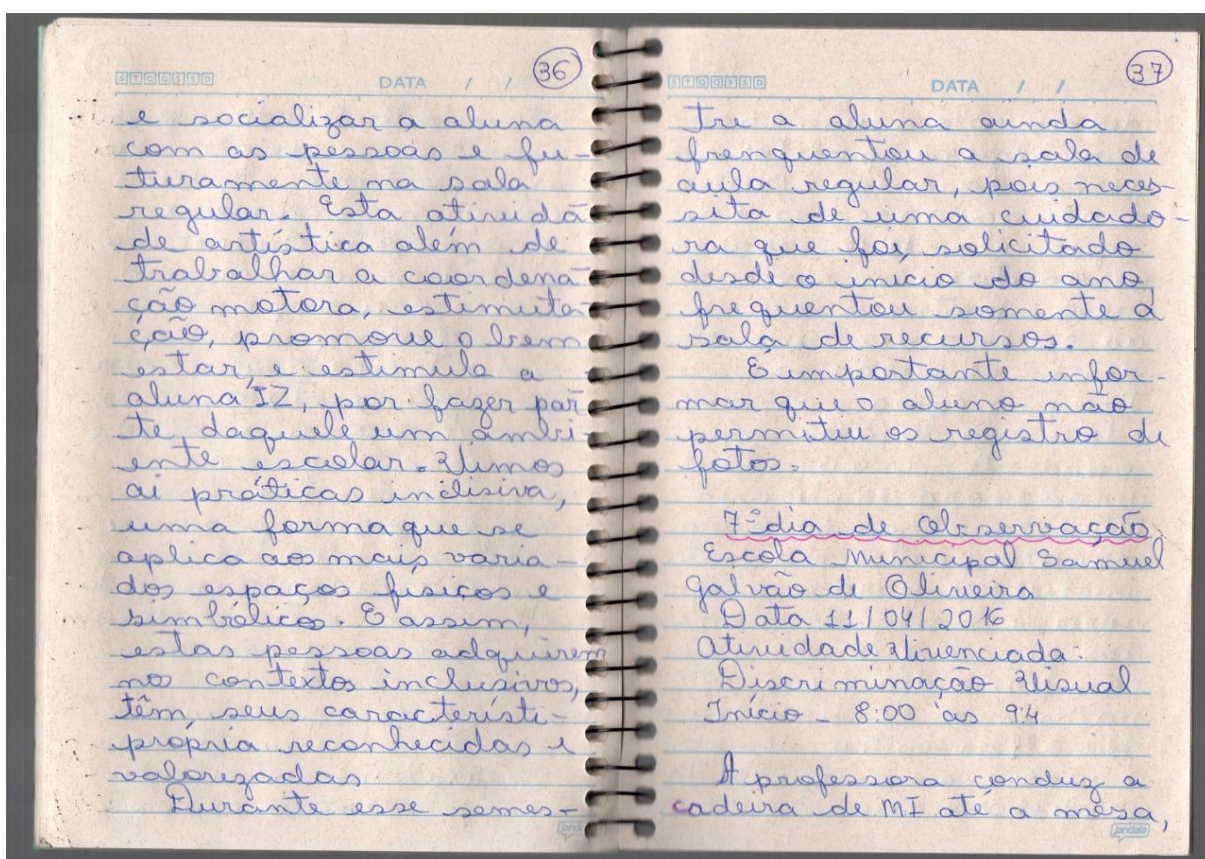 STQQSSD DATA / / 36
e socializar a aluna
com as pessoas e fu-
turamente na sala
regular. Esta atividа
de artística além de
trabalhar a coordena
ção motora, estimula
ção, promove o bem
estar, e estimula a
aluna IZ, por fazer par
te daquele um ambi-
ente escolar. Vimos
ai práticas inclisiva,
uma forma que se
aplica aos mais varia-
dos espaços físicos e
simbólicos. E assim,
estas pessoas adquirem
nos contextos inclusivos,
têm, seus característi-
própria reconhecidas e
valorizadas.
Durante esse semes-
jandaia
STQQSSD DATA / / 37
tre a aluna ainda
frenquentou a sala de
aula regular, pois neces-
sita de uma cuidado-
ra que foi, solicitado
desde o início do ano,
frequentou somente a
sala de recursos.
É importante infor-
mar que o aluno não
permitiu os registro de
fotos.
7º dia de Observação.
Escola Municipal Samuel
Galvão de Oliveira
Data 11/04/2016
Atividade Vivenciada:
Discriminação Visual
Início - 8:00 às 9:4
A professora conduz a
cadeira de MI até a mesa,
jandaia